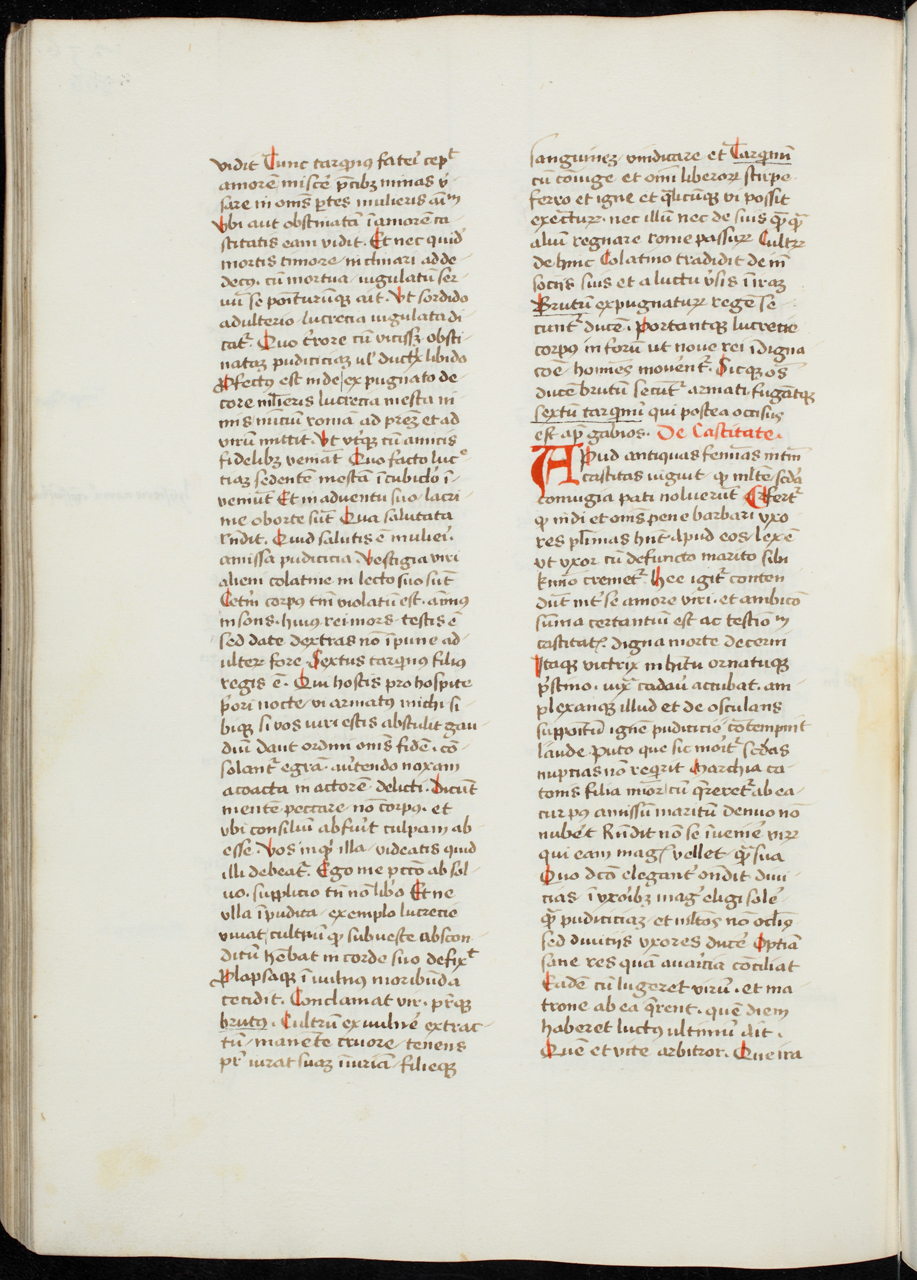 vidit Tunc tarqͥniꝰ fateri cepᵗ
amorē misce᷑ p̄cibꝫ minas v᷑
sare in om̄s ptes mulieris aīᵐ
Vbi aut obstinatā ī amorē ca
stitatis eam vidit. Et nec quid᷑
mortis timore. inclinari adde
decꝰ. cū mortua. iugulatū ser
uū se positurūqꝫ ait. Vt sordido
adulterio. lucrecia iugulata di
cat᷑. Quo t᷑rore cū vicissꝫ obsti
natā pudiciciaꝫ vl᷑ ductꝝ libido
Pfectꝰ est inde expugnato de
core mlieris lucrecia mesta ni
mis nūciū romā ad prēꝫ et ad
virū mittit. Vt vt᷑qꝫ cū amicis
fidelibꝫ veniat Quo facto lucᵉ
tiaꝫ sedentē mestā ī cubiclo ī
veniūt Et in adventu suo. lacri
me oborte sūt Qua salutata
rn̄dit. Quid salutis ē mulieri᷑.
amissa pudicicia. Vestigia viri
alieni colatine in lecto suo sūt
Cet᷑m corpꝰ tm̄ violatū est. aīmꝰ
insons. huiꝰ rei mors. testis ē
sed date dextras nō īpune ad
ulterꝫ fore. Sextus tarqͥniꝰ filiꝰ
regis ē. Qui hostis pro hospite
p᷑ori nocte. vi armatꝰ michi si
biqꝫ si vos viri estis abstulit gau
diū dant ordini om̄s fidē. cō
solant᷑ egrā. au᷑tendo noxam
a coacta in actorē delicti. Dicūt
mentē peccare. nō corpꝰ. et
vbi consiliū abfuit culpam ab
esse. Vos inqͥ illa. videatis quid
illi debeat᷑. Ego me pctō absol
uo. supplicio tn̄ nō lib᷑o Et ne
vlla īpudica. exemplo lucrecie
viuat cultrū qͥ sub veste abscon
ditū hēbat in corde suo defixᵗ
Plapsaqꝫ ī vulnꝰ moribunda
cecidit. Conclamat vir. prꝫqꝫ
brutꝰ. Cultrū ex vuln᷑e extrac
tū. manete cruore. tenens
pr᷑ iurat suaꝫ iniuriā. filieqꝫ
sanguineꝫ vindicare et Tarqͥniū
cū cōiuge et oīni liberoꝝ stirpe
ferro et igne et qͣlicūqꝫ vi possit
executurꝝ. nec illū nec de suis qͣ qͣ
aliū regnare rome passurꝝ Cultꝝ
dehinc Colatino tradidit dein̄
sociis suis et a luctu v᷑sis ī iraꝫ
Brutū expugnaturꝝ regē se
cunt᷑ ducē. Portantqꝫ lucrecie
corpꝰ in forū ut noue rei īdigna
cōe. hom̄es mouent᷑. Sicqꝫ om̄s
ducē brutū secunt᷑ armati. fugatqꝫ
sextū tarqͥniū qui postea occisus
est apᷣ gabios. De Castitate.
Apud antiquas feminas m̄tm̄
castitas viguit. qͥ mlte scd᷑a
coniugia pati noluerūt Fert᷑
qͥ indi et om̄s pene barbari vxo
res plīmas hn̄t. Apud eos. lex ē
vt vxor cū defuncto marito sibi
kīmo cremet᷑. Hee igit᷑ conten
dūt int᷑ se amore viri. et ambicō
sūma certantiū est ac testioᵐ
castitat᷑. digna morte decerni
Itaqꝫ victrix in hitu ornatuqꝫ
p᷑stino. iuxᵃ cadau᷑ accubat. am
plexanqꝫ illud et de osculans
suppoitū ignē pudicicie cōtempnit
laude. Puto que sic mo᷑it᷑ sc᷑das
nuptias nō reqͥrit Marchia ca
tonis filia mīor cū q᷑reret᷑ ab ea
cur pꝰ amissū maritū denuo nō
nub᷑et Rn̄dit nō se īvenire virꝝ
qui eam mag᷑ vellet. qͣ sua
Quo dcō eleganter on̄dit diui
cias. ī vxoribꝫ mag᷑ eligi sole᷑
qͣ pudiciciaꝫ. et mltos nō oclis
sed diuiciis vxores duce᷑ Optiā
sane res quā auaricia conciliat
Eadē cū lugeret virū. et ma
trone ab ea q᷑rent. quē diem
haberet luctꝰ ultimū Ait.
Quē et vite arbitror. Que ita